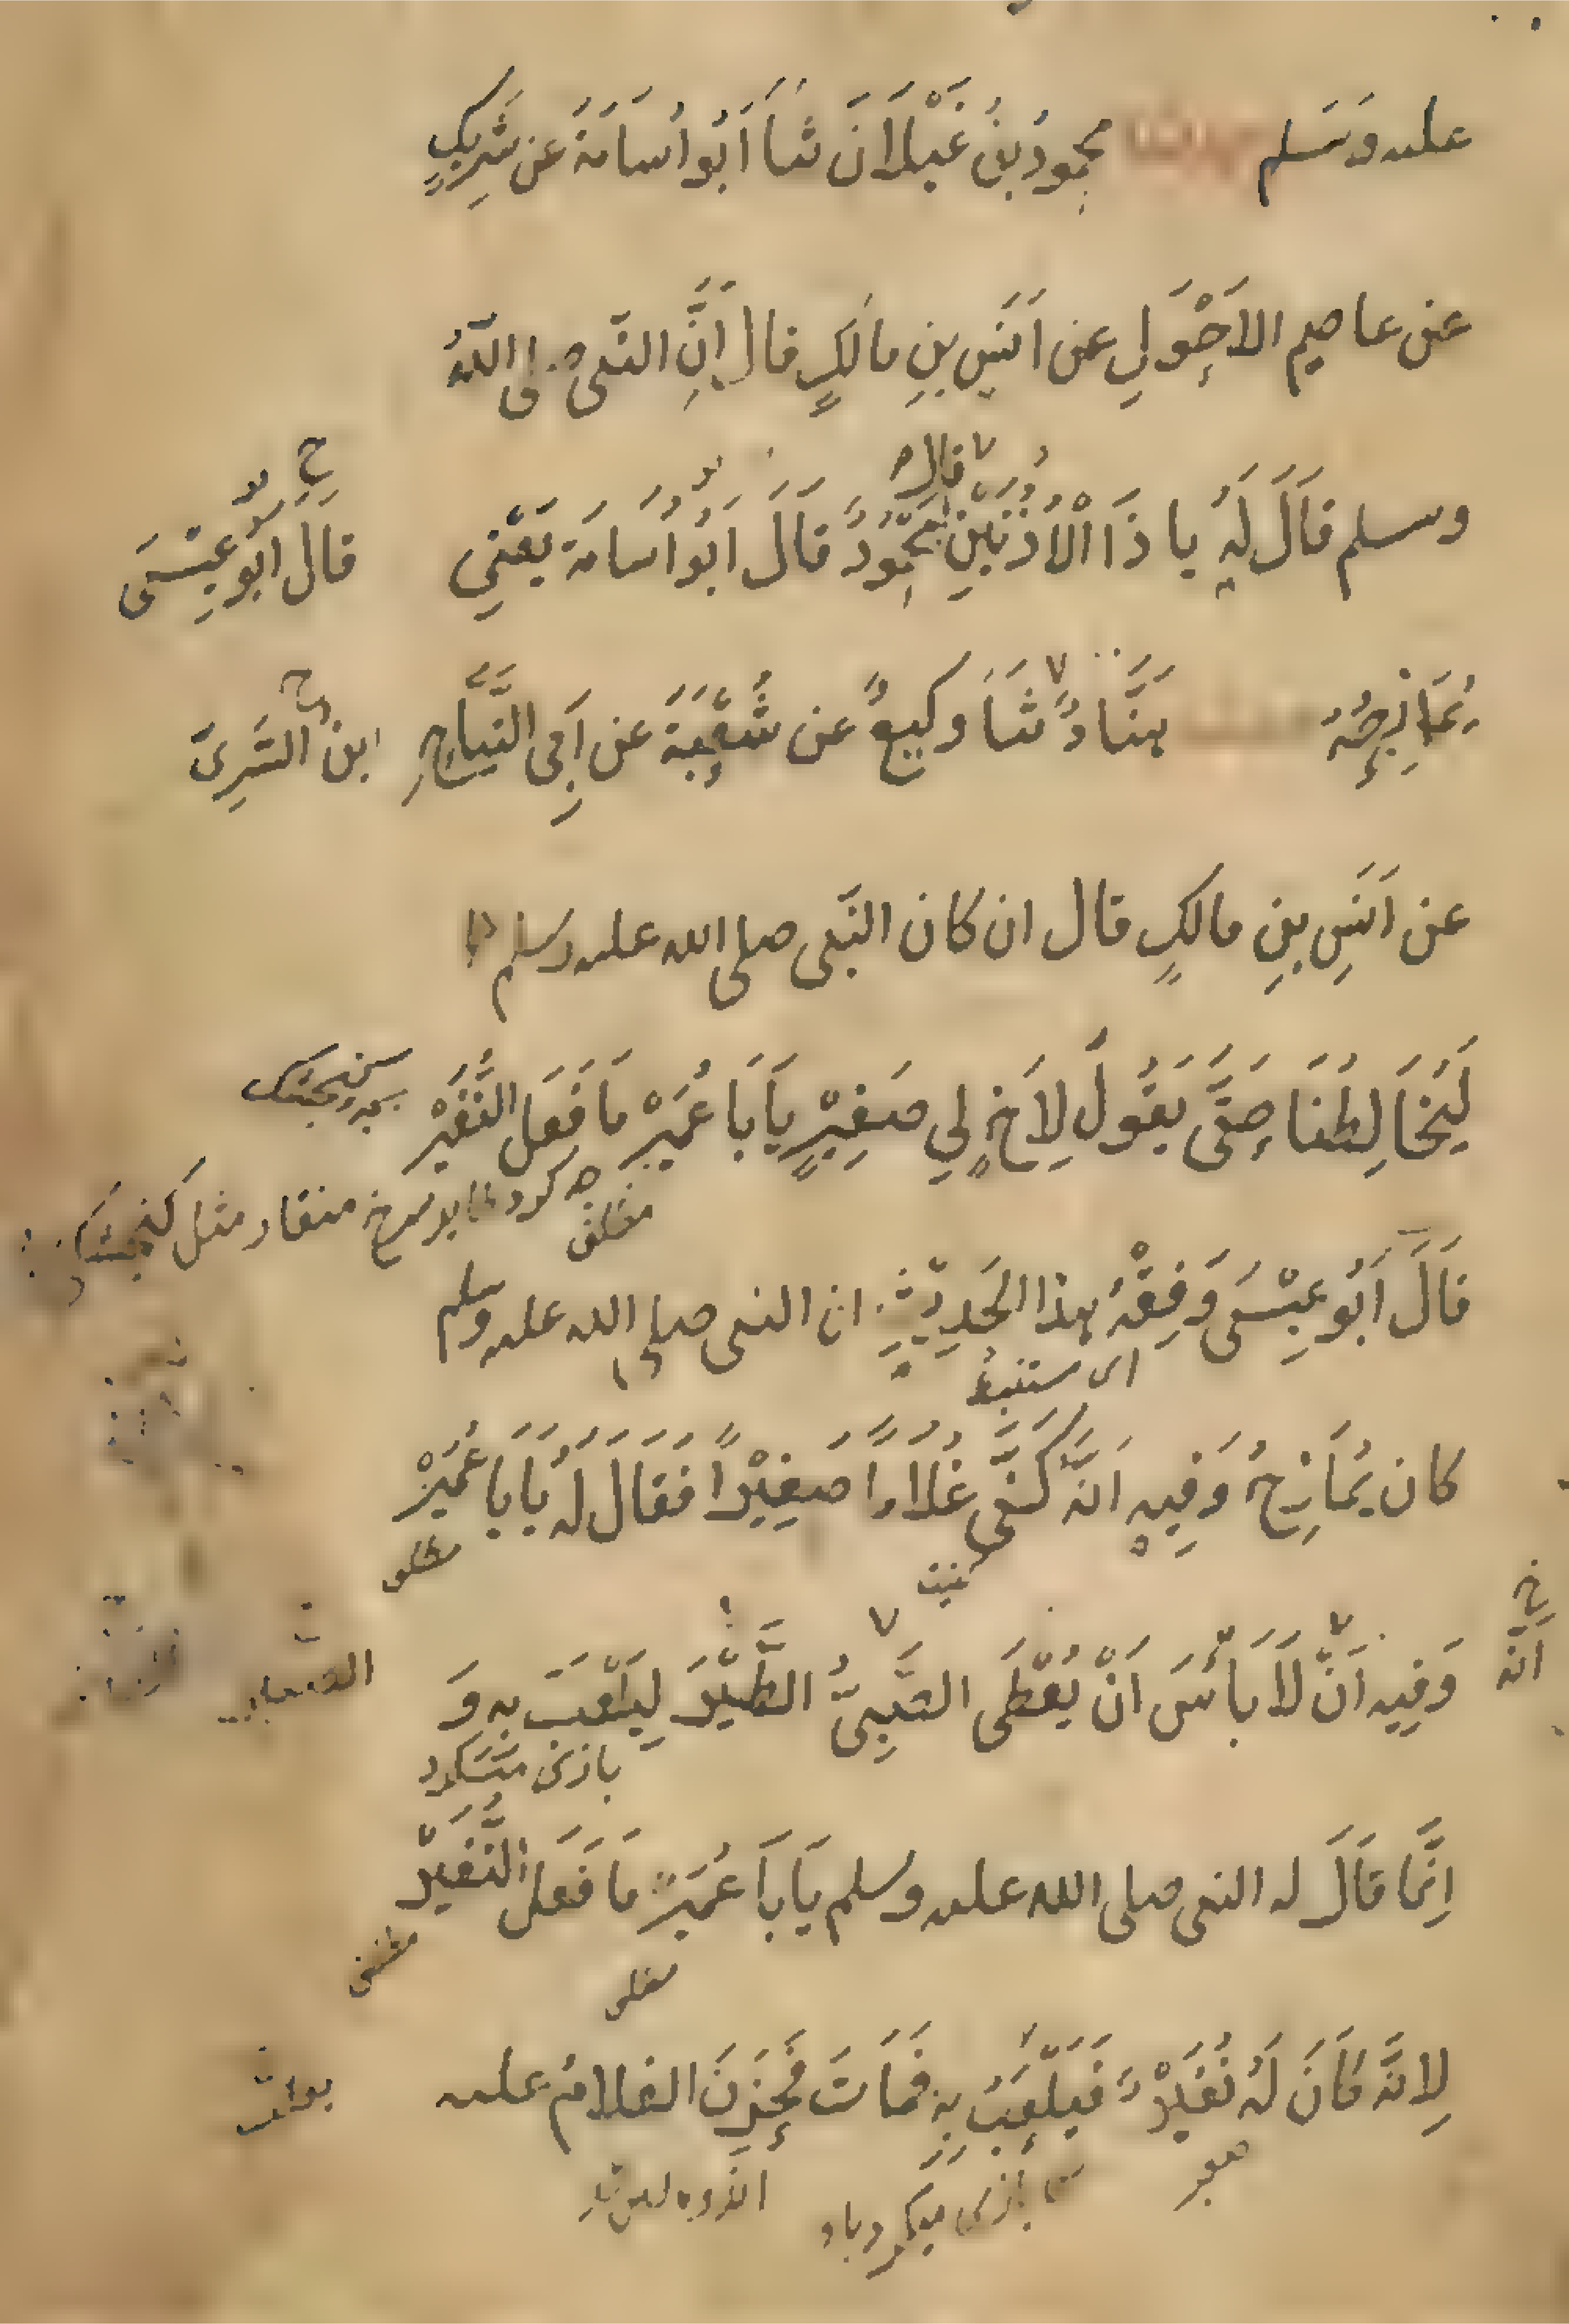 عليه وسلم حدثنا محمودُ بنُ غَيْلَانَ ثنا أَبُو أُسَامَةَ عن شَرِيكٍ
عن عاصِمِ الاَحْوَلِ عن اَنَسِ بنِ مالكٍ قال اِنَّ النَّبِىَّ صلى اللهُ
قال
وسلم قَالَ لَهُ يا ذَا الْاُذُنَيْنِ مَحْمُوْدٌ قَالَ اَبُو اُسَامَة يَعْنِى
قَالَ اَبُو عِيْسَى
يُمَازِحُهُ حدثنا هَنَّادٌ ثَنَا وَكِيعٌ عن شُعْبَةَ عن اَبِى التَّيَّاحِ
ابن السَّرِىّ
عن اَنَسِ بنِ مالكٍ قال ان كان النَّبِى صلى الله عليه وسلم
لَيُخَالِطُنَا حَتَّى يَقُولَ لِاَخٍ لِي صَغِيْرٍ يَابَا عُمَيْرْ مَا فَعَلَ النُّغَيْرْ
سرخ منقار مثل كنجشك
قَالَ اَبُو عِيْسَى وَفِقْهُ هذا الحَدِيْثِ ان النبى صلى الله عليه وسلم
كان يُمَازِحُ وَفِيهِ اَنَّهُ كَنَّى غُلَامًا صَغِيْرًا فَقَالَ لَهُ يَابَا عُمَيْرْ
كنيت
اَنَّه
وَفِيهِ اَنَّ لَا بَاْسَ اَنْ يُعْطَى الصَّبِىُّ الطَّيْرَ لِيَلْعَبَ بِهِ وَ
بازى ميكرد
اِنَّمَا قَالَ له النبى صلى الله عليه وسلم يَابَا عُمَيْرْ مَا فَعَلَ النُّغَيْرْ
لِاَنَّهُ كَانَ لَهُ نُغَيْرٌ فَيَلْعَبُ بِهِ فَمَاتَ فَحَزِنَ الغلامُ عليه
بازى ميكرد باو